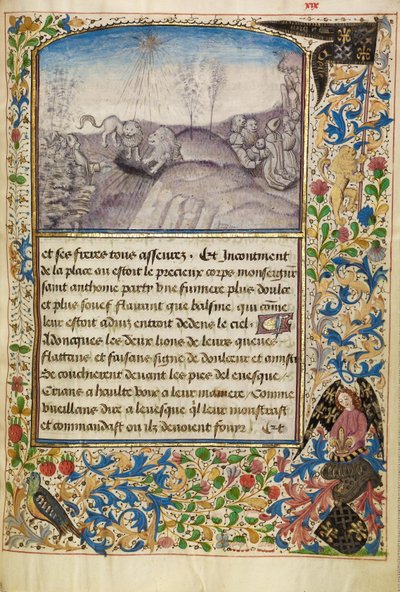 xix
et ses freres tous asseurez . Et Incontinent
de la place ou estoit le precieux corps monseigneur
saint anthoine party vne fumiere plus doulce
et plus souef flairant que balsme qui come
leur estoit aduis entroit dedens le ciel .
Adoncques les deux lions de leurs queues
flattans et faisans signe de douleur et ainsi
se coucherent deuant les pies del euesque
Crians a haulte voix a leur maniere Comme
vueillans dire a leuesque ql leur monstrast
et commandast ou ilz deuoient fouyr . Et